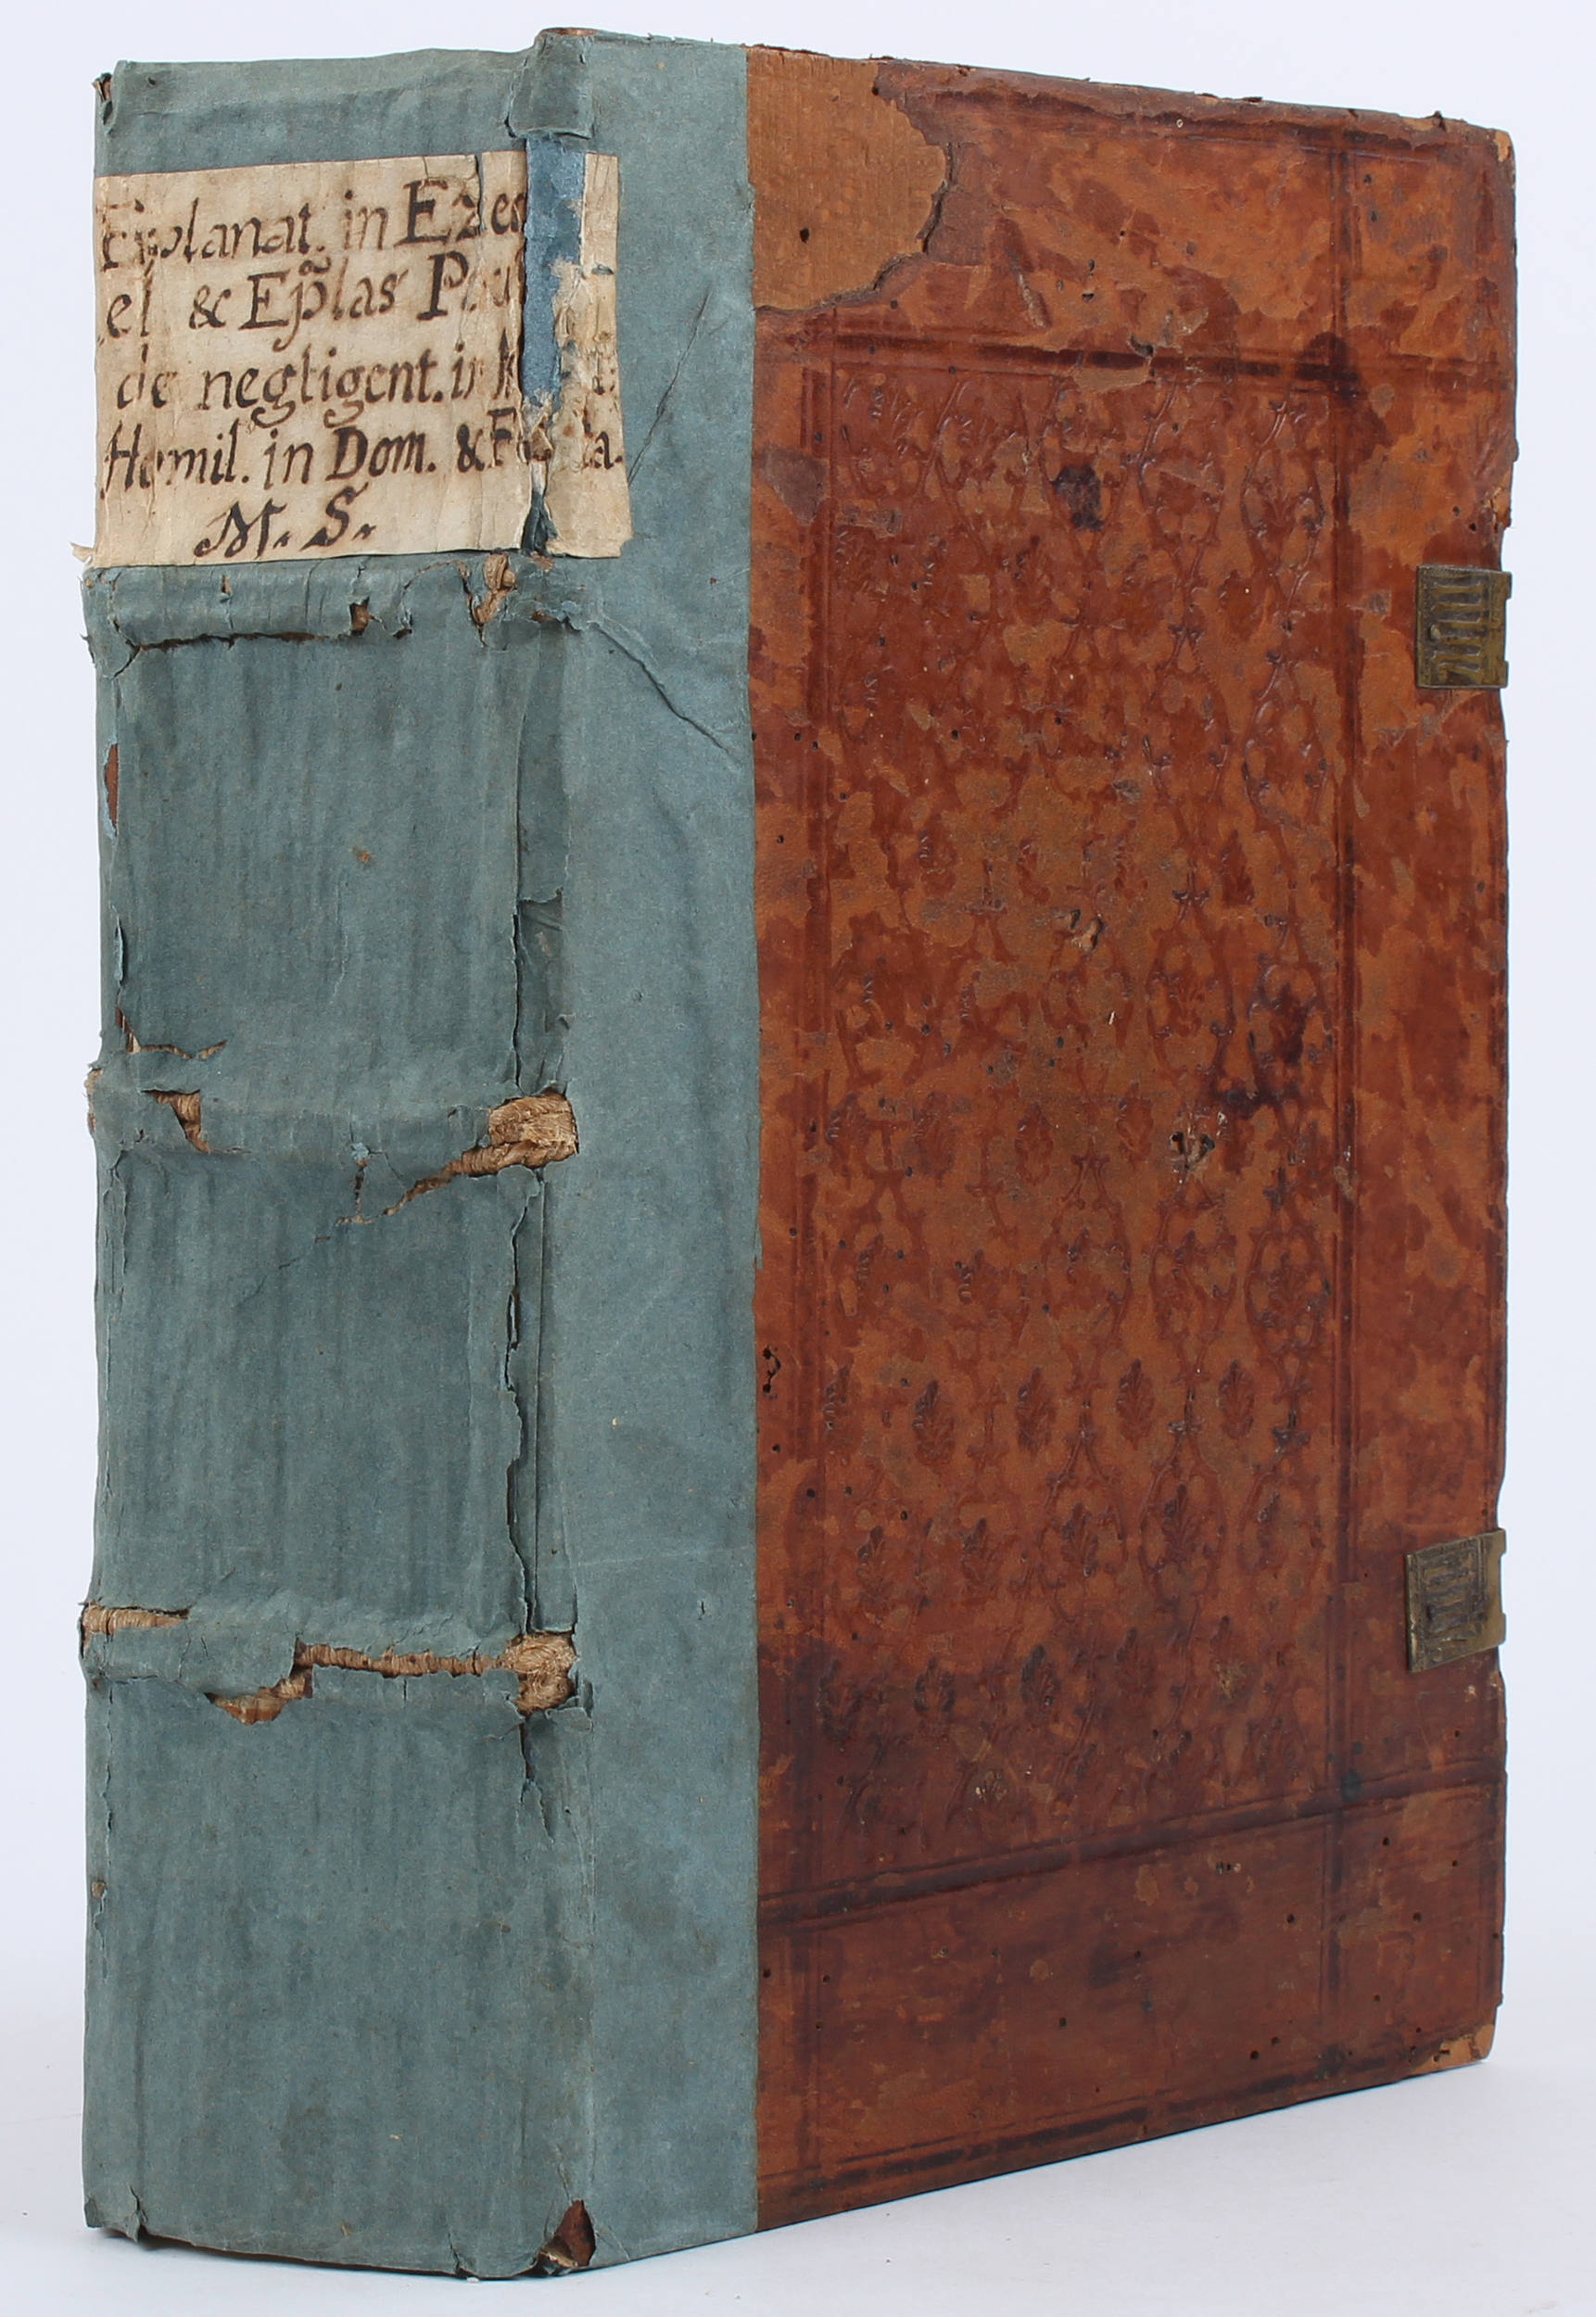 Explanat. in Ezec
el & Ep̃las Paul
de negligent. in
Homil. in Dom. & Festa.
M. S.